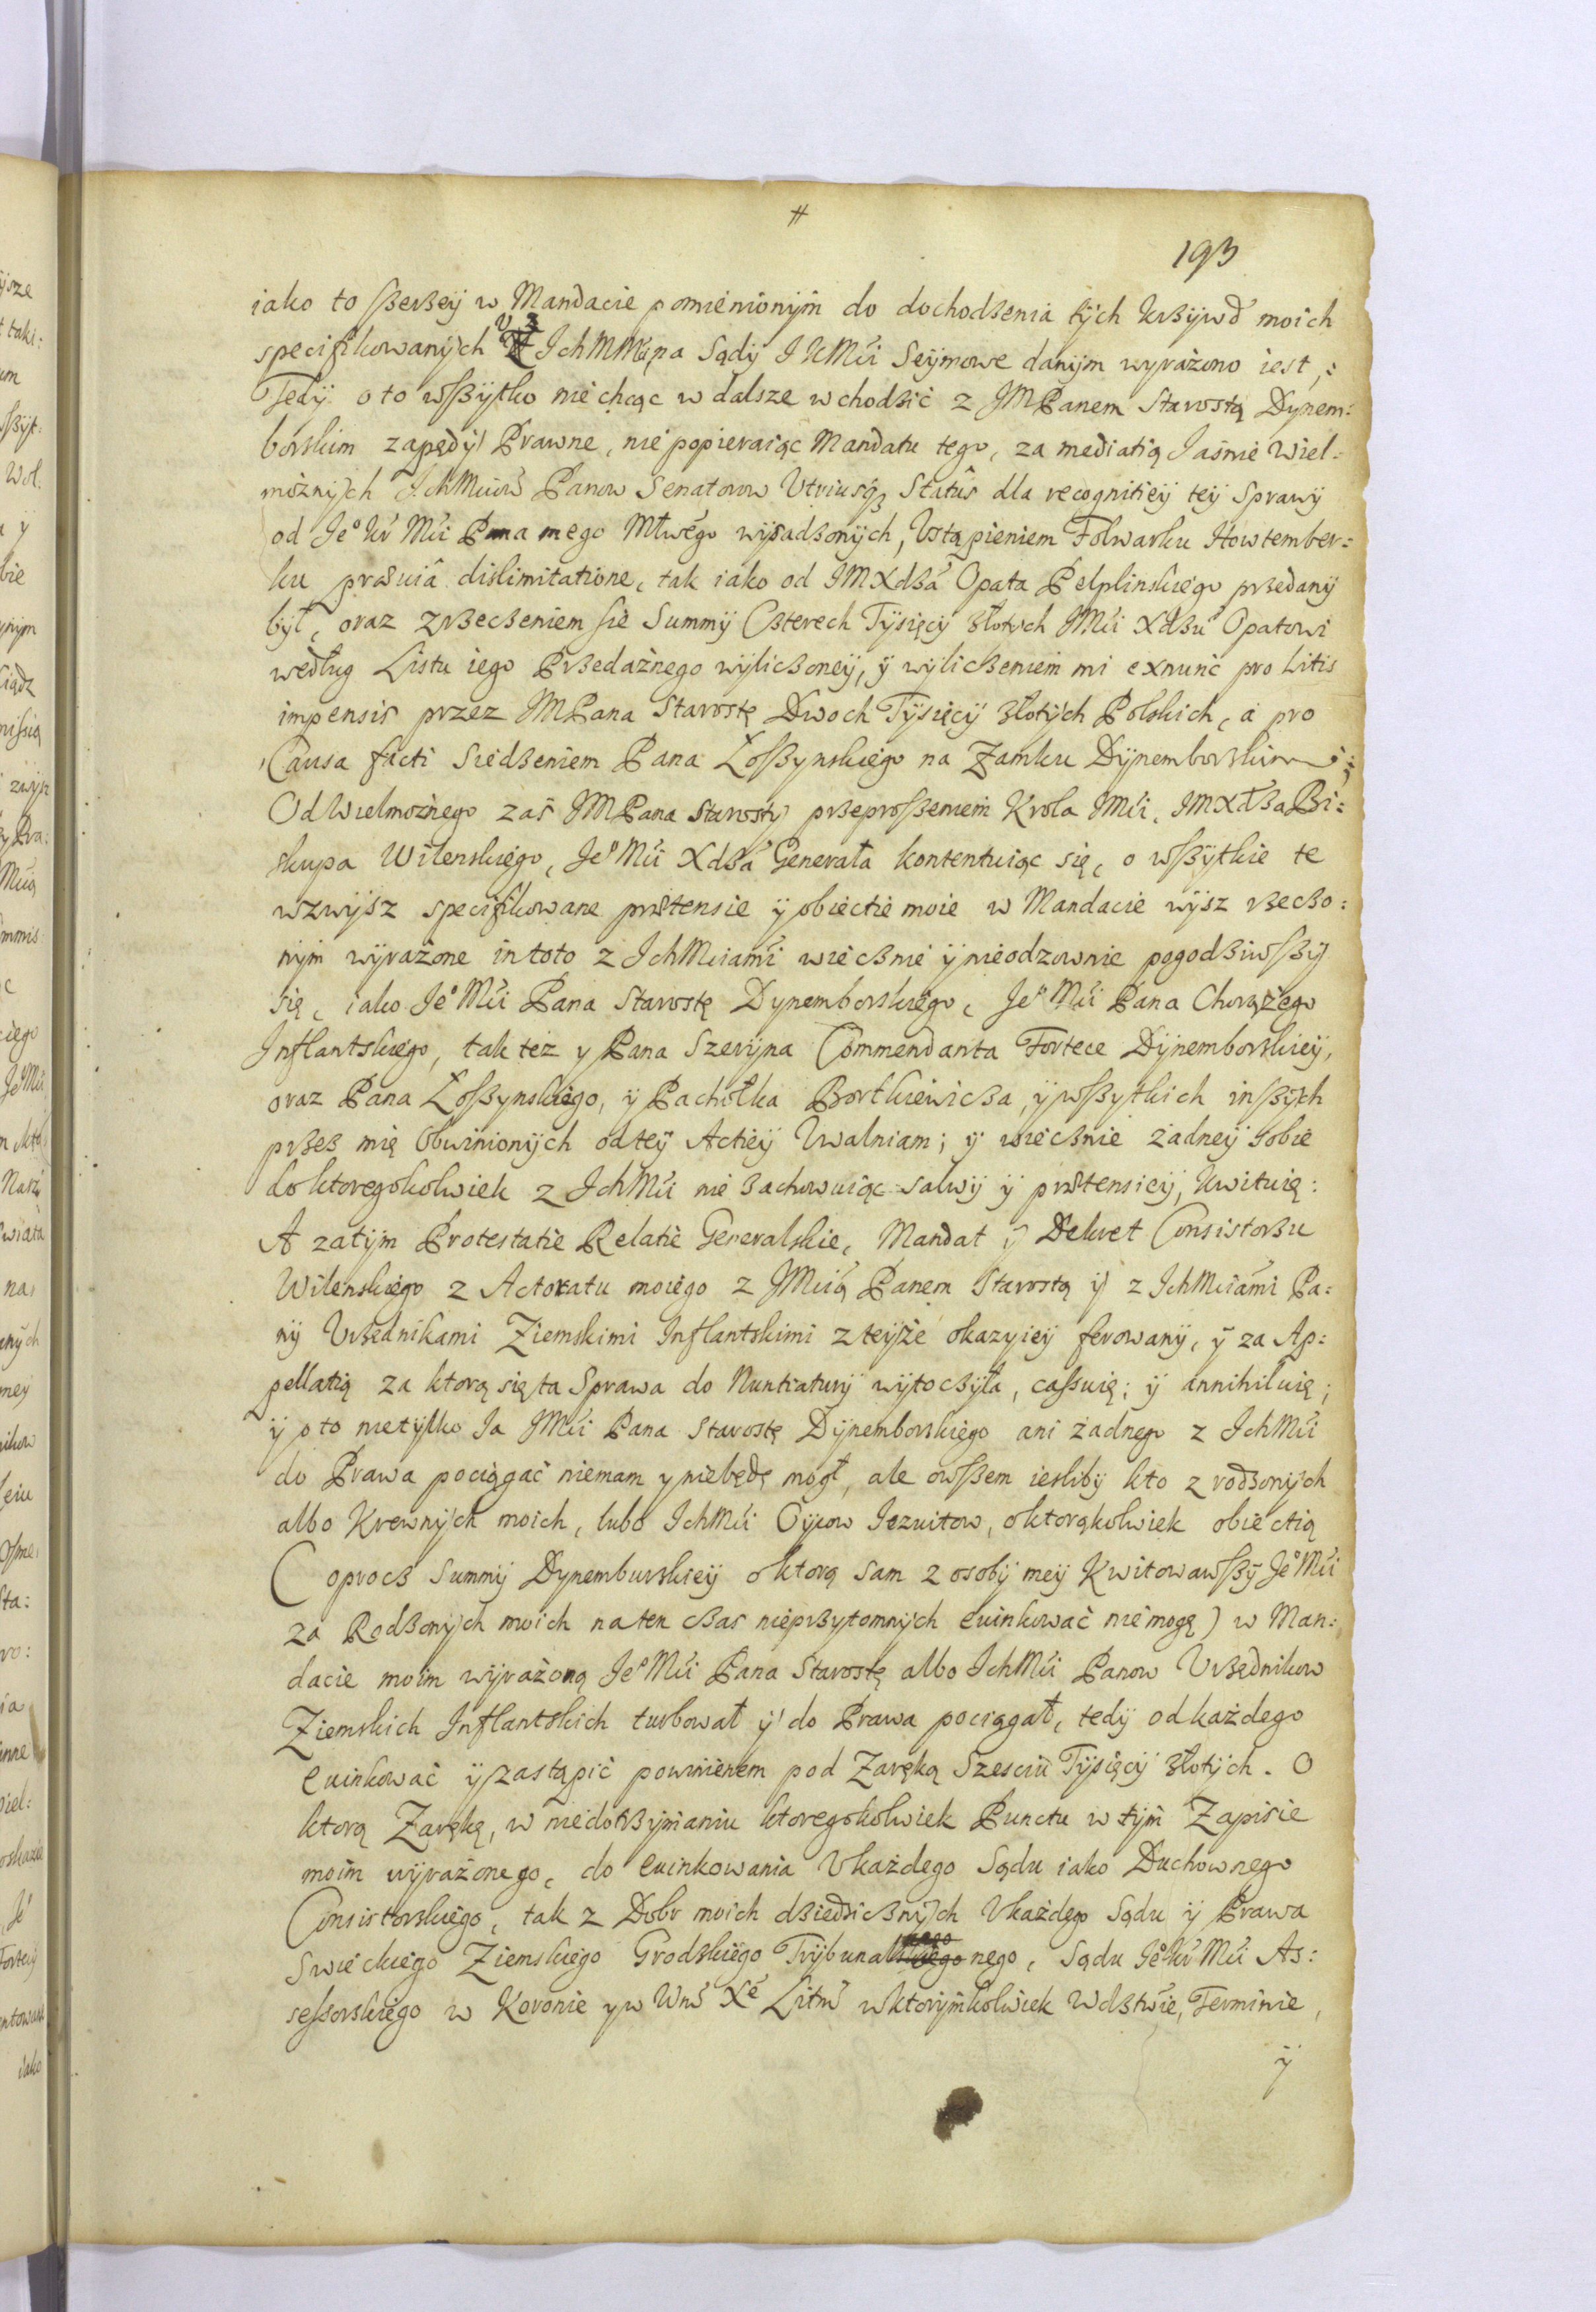 #
193
iako to szerzey w Mandacie pomienionym do dochodzenia tych krzywd moich
specifikowanych z IchMM na Sądy I K Mći Seymowe danym wyrażono iest,:
Tedy o to wszytko nie chcąc w dalsze wchodzić z JMPanem Starostą Dynem:
borskim zapędy Prawne, nie popieraiąc Mandatu tego, za mediatią Jaśnie Wiel:
możnych IchMciow Panow Senatorow Utriusq3 Status dla recognitiey tey Sprawy
od Je° Kr Mći Pana mego Młwego wysadzonych, Vstąpieniem Folwarku Howtember:
ku præuiâ dislimitatione, tak iako od IMXdza Opata Pelplinskiego przedany
był, oraz zrzeczeniem sie Summy Czterech Tysięcy złotych JMći Xdzu Opatowi
według Listu iego Przedażnego wyliczoney, y wyliczeniem mi exnunc pro Litis
impensis przez JMPana Starostę Dwoch Tysięcy złotych Polskich, a pro
Causa facti Siedzeniem Pana Łoszynskiego na Zamku Dynemborskim;
Od Wielmożnego zaś JMPana Starosty przeproszeniem Krola JMći, JMXdza Bi:
skupa Wilenskiego, Je° Mći Xdza Generała kontentuiąc się, o wszytkie te
wzwysz specifikowane prætensie y obiectie moie w Mandacie wysz rzeczo:
nym wyrażone in toto z IchMciami wiecznie y nieodzownie pogodziwszy
się, iako Je° Mći Pana Starostę Dynemborskiego, Je° Mći Pana Chorążego
Inflantskiego, tak też y Pana Szeryna Commendanta Fortece Dynemborskiey,
oraz Pana Łoszynskiego, y Pachołka Bortkiewicza, y wszytkich inszych
przez mię Obwinionych od tey Actiey Uwalniam; y wiecznie żadney sobie
do ktoregokolwiek z IchMći nie zachowuiąc salwy y prætensiey, kwituię:
A zatym Protestatie Relatie Generalskie, Mandat y Dekret Consistorzu
Wilenskiego z Actoratu moiego z JMcią Panem Starostą y z IchMciami Pa:
ny Vrzednikami Ziemskimi Inflantskimi z teyże okazyiey ferowany, y za Ap:
pellatią za ktorą się ta Sprawa do Nuntiatury wytoczyła, cassuię; y annihiluię;
y o to nie tylko Ia JMći Pana Starostę Dynemborskiego ani żadnego z IchMći
do Prawa pociągać niemam y niebędę mogł, ale owszem iesliby kto z rodzonych
albo Krewnych moich, lubo IchMći Oycow Iezuitow, o ktorąkolwiek obiectią
( oprocz Summy Dynemburskiey o ktorą sam z osoby mey Kwitowawszy Je° Mći
za Rodzonych moich na ten czas nieprzytomnych euinkować nie mogę) w Man:
dacie moim wyrażoną Je° Mći Pana Starostę albo IchMći Panow Vrzędnikow
Ziemskich Inflantskich turbował y do Prawa pociągał, tedy od każdego
euinkować y zastąpić powinienem pod Zaręką Szesciu Tysięcy złotych. O
ktorą Zarękę, w niedotrzymaniu ktoregokolwiek Punctu w tym Zapisie
moim wyrażonego, do euinkowania Vkażdego Sądu iako Duchownego
Consistorskiego, tak z Dobr moich dziedzicznych Vkażdego Sądu y Prawa
Swieckiego Ziemskiego Grodzkiego Trybunalnego, Sądu Je° Kr Mći As:
sessorskiego w Koronie y w Wm Xe Litm w ktorymkolwiek Wdztwie, Terminie,
y